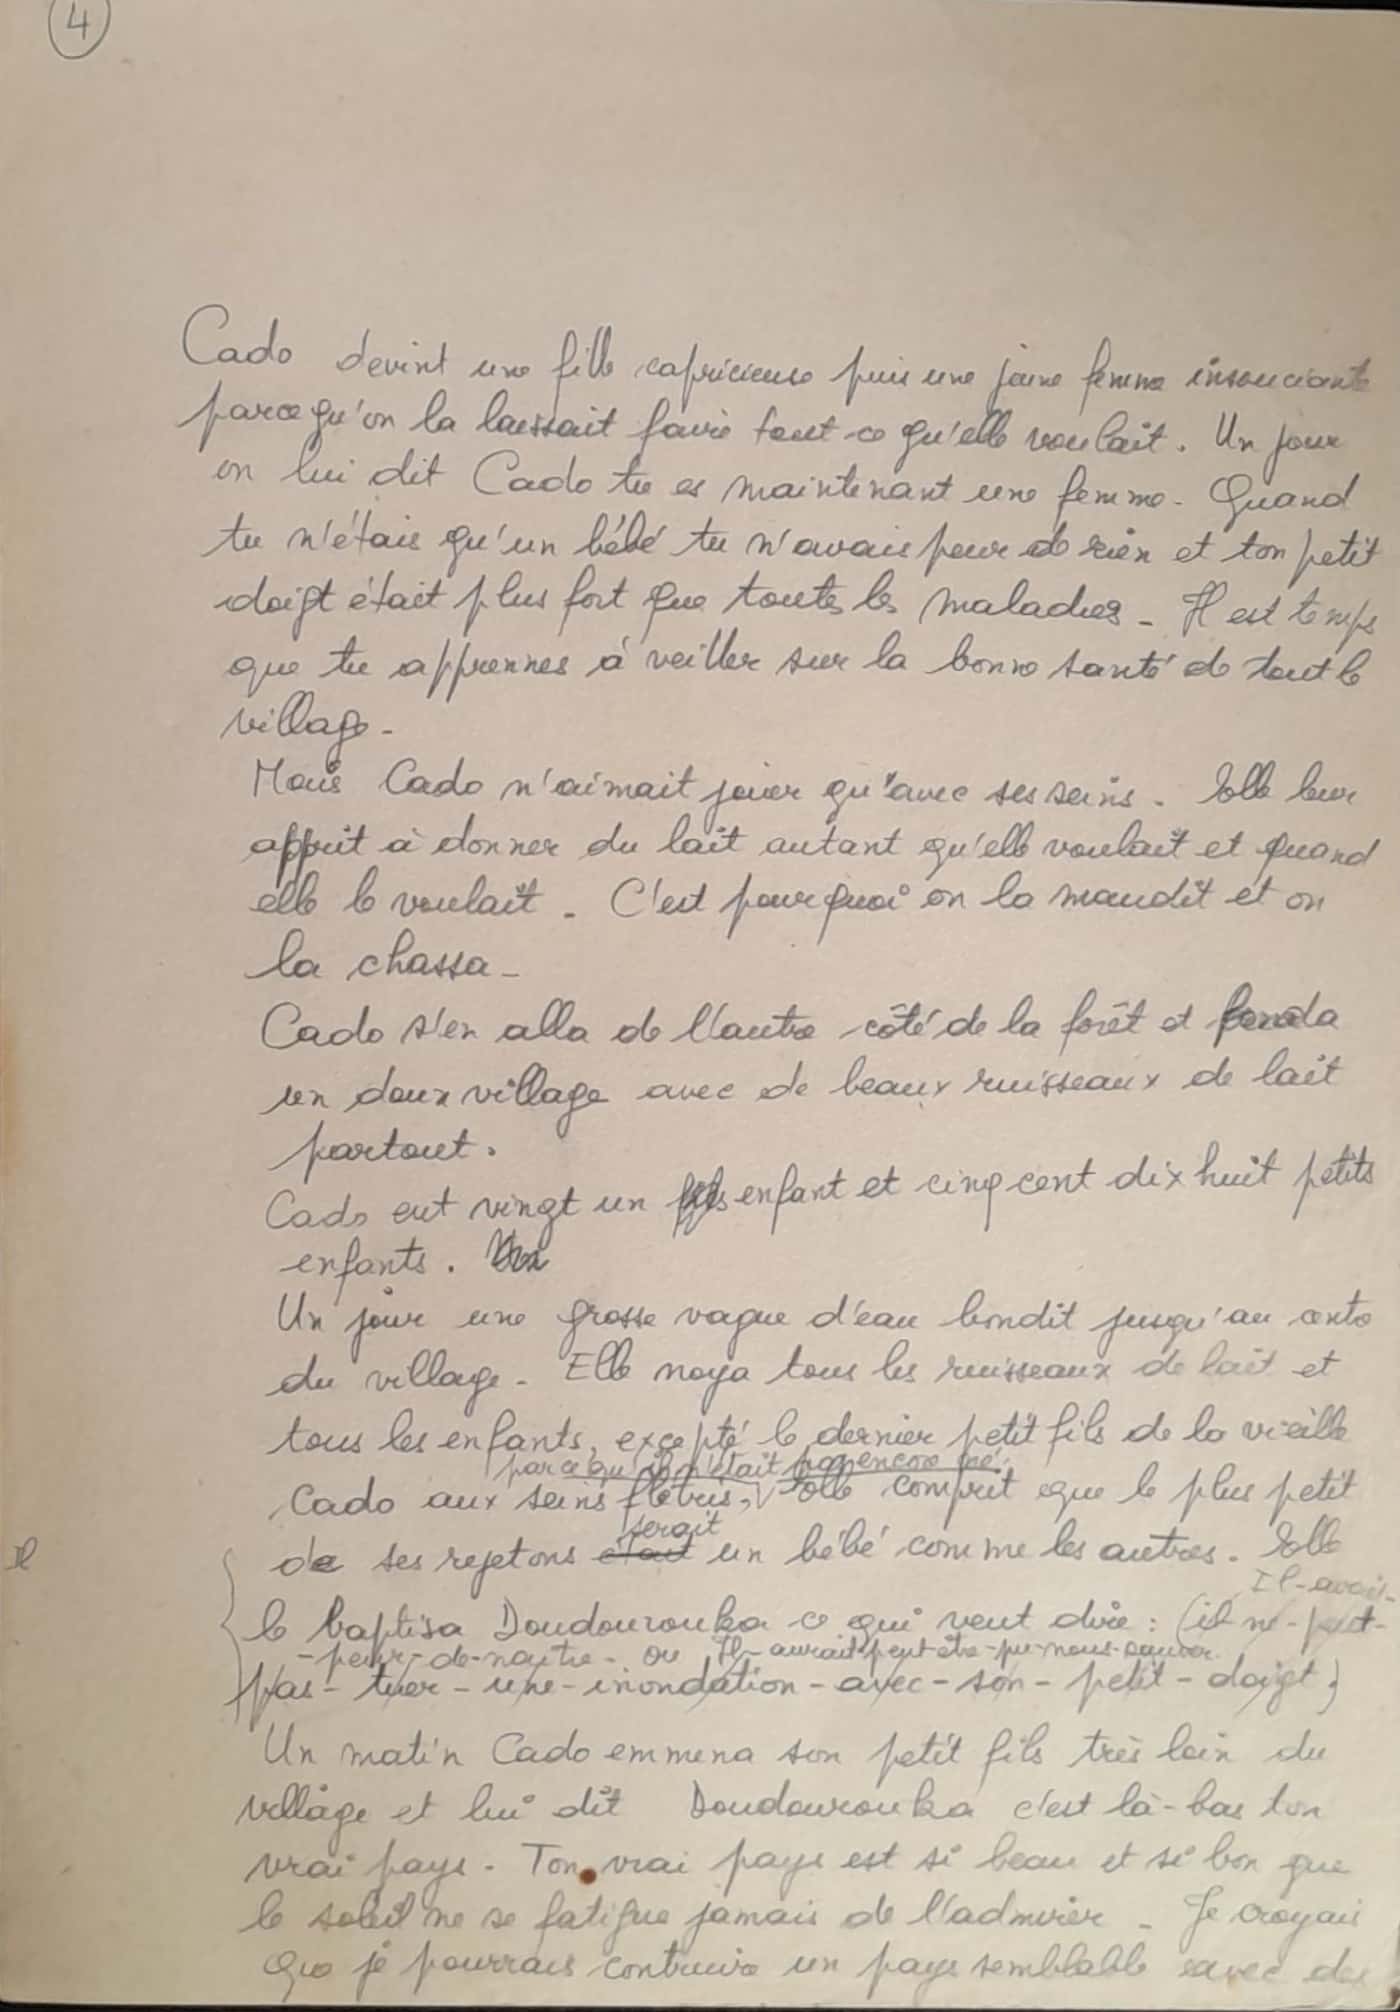 4
Cado devint une fille capricieuse puis une jeune femme insouciante
parce qu'on la laissait faire tout ce qu'elle voulait. Un jour
on lui dit Cado tu es maintenant une femme - Quand
tu n'étais qu'un bébé tu n'avais peur de rien et ton petit
doigt était plus fort que toutes les maladies - Il est temps
que tu apprennes à veiller sur la bonne santé de tout le
village -
Mais Cado n'aimait jouer qu'avec ses seins. Elle leur
apprit à donner du lait autant qu'elle voulait et quand
elle le voulait - C'est pourquoi on la maudit et on
la chassa -
Cado s'en alla de l'autre côté de la forêt et fonda
un doux village avec de beaux ruisseaux de lait
partout.
Cado eut vingt un enfant et cinq cent dix huit petits
enfants.
Un jour une grosse vague d'eau bondit jusqu'au centre
du village - Elle noya tous les ruisseaux de lait et
tous les enfants, excepté le dernier petit fils de la vieille
parce qu'il n'était pas encore né.
Cado aux seins flétris, Elle comprit que le plus petit
serait
de ses rejetons était un bébé comme les autres. Elle
Il-avait-
le baptisa Doudourouka ce qui veut dire : (il-ne-peut-
-peur-de-naître- ou Il-aurait-peut-être-pu-nous-sauver.
pas-tuer-une-inondation-avec-son-petit-doigt)
Un matin Cado emmena son petit fils très loin du
village et lui dit Doudourouka c'est là-bas ton
vrai pays - Ton vrai pays est si beau et si bon que
le soleil ne se fatigue jamais de l'admirer - Je croyais
que je pourrais contruire un pays semblable avec des